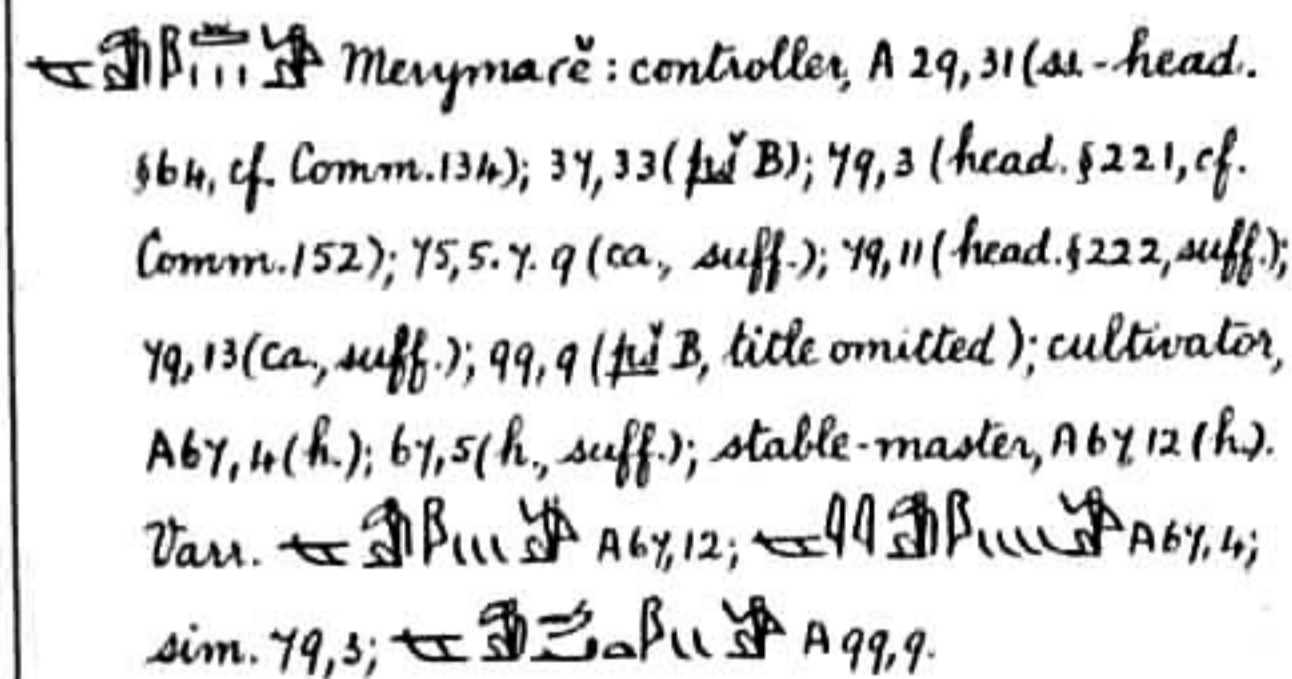 Merymaꜥĕ: controller, A 29,31 (-head.
§64, cf. Comm.134); 37,33 (pš B); 79,3 (head. §221, cf.
Comm.152); 75,5.7.9 (ca., suff.); 79,11 (head. §222, suff.);
79,13 (ca., suff.); 99,9 (pš B, title omitted); cultivator,
A67,4 (h.); 67,5 (h., suff.); stable-master, A67,12 (h.).
Varr. A67,12; A67,4;
sim. 79,3; A99,9.